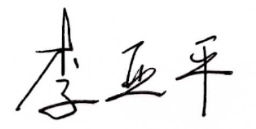 李亚平